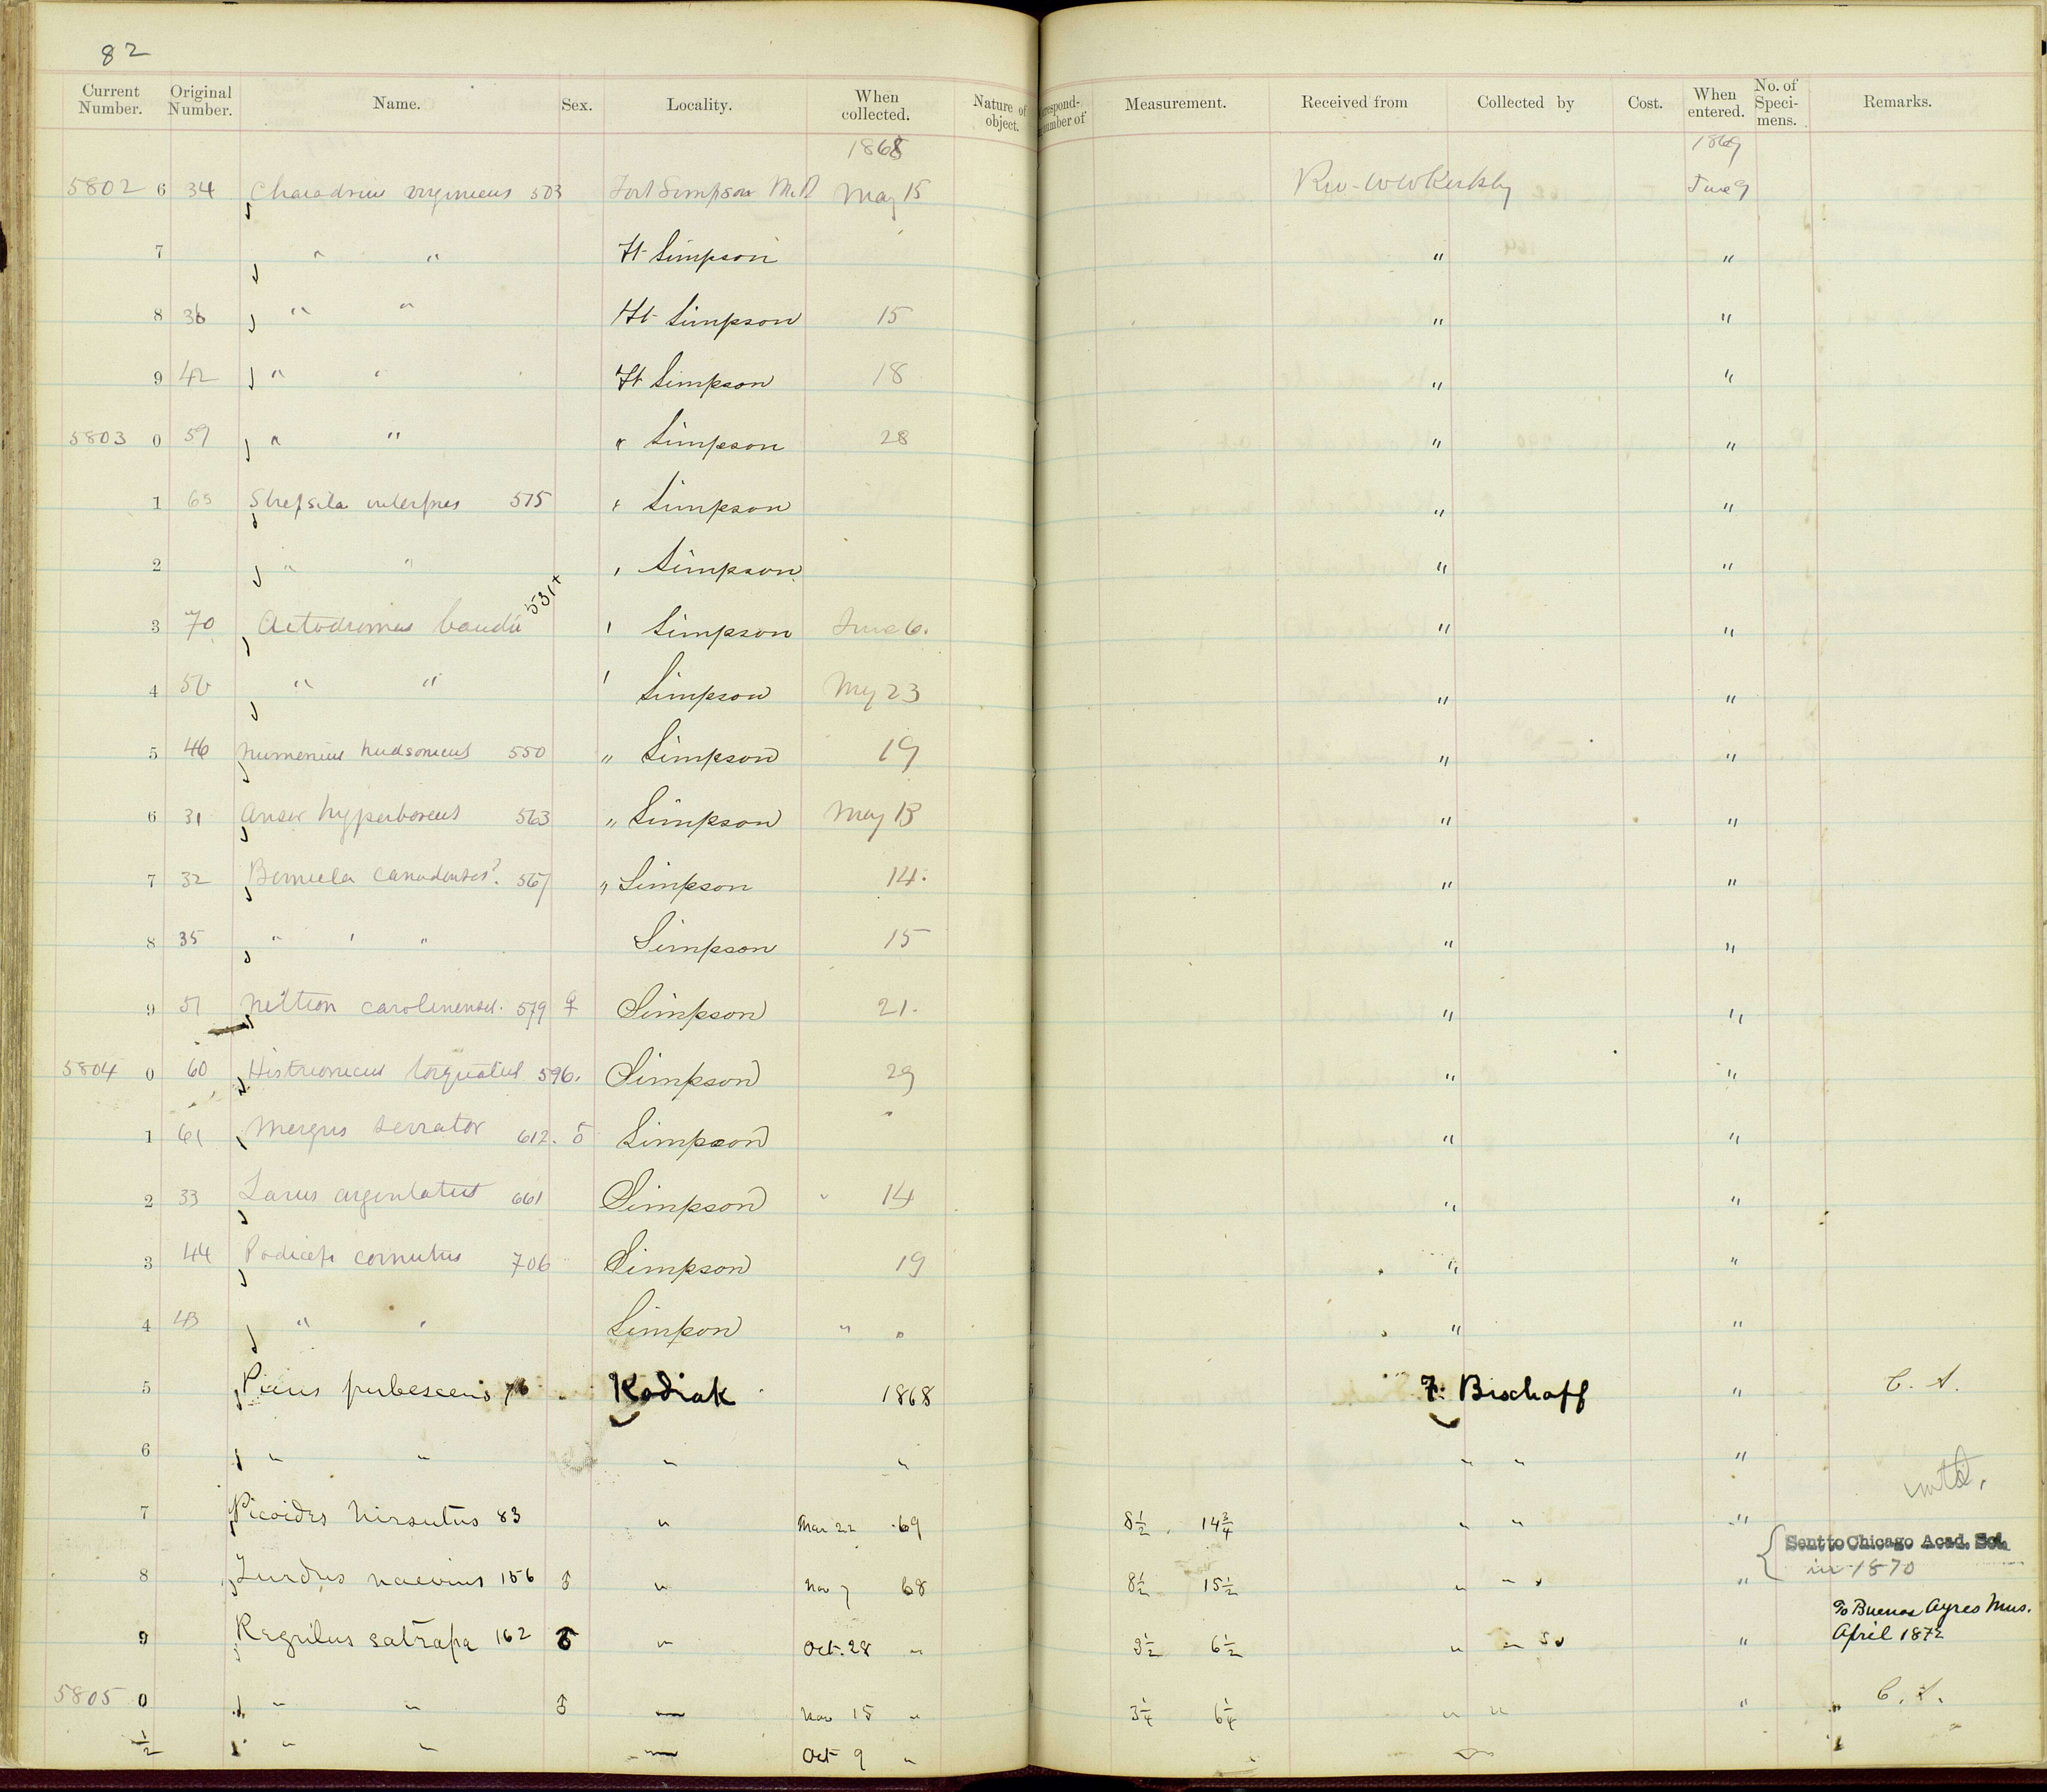 82
Current Number. Original Number. Name. Sex. Locality. When collected. Nature of object. Measurement. Received from Collected by Cost. When entered. No. of Specimens. Remarks.
1868 1869
5802 6 34 Charadrius virginicus 503 Fort Simpson May 15 Rev. W W Kirkby June 9
7 " " Ft Simpson " "
8 36 " " Ft Simpson 15 " "
9 42 " " Ft Simpson 18 " "
5803 0 59 " " " Simpson 28 " "
1 65 Strepsila interpres 515 " Simpson " "
2 " " " Simpson " "
3 70 Actodromas bairdii 531+ " Simpson June 6. " "
4 " " " Simpson May 23 " "
5 46 Numenius hudsonicus 550 " Simpson 19 " "
6 31 Anser hyperboreus 563 " Simpson May 13 " "
7 32 Bernicla canadensis? 567 " Simpson 14. " "
8 35 " " " Simpson 15 " "
9 51 Nettion carolinensis. 579 ♀ Simpson 21. " "
5804 0 60 Histrionicus torquatus 596. Simpson 29 " "
1 61 Mergus serrator 612. ♂ Simpson " " "
2 33 Larus argentatus 661 Simpson " 14 " "
3 44 Podiceps cornutus 706 Simpson 19 " "
4 43 " " Simpson " " " "
5 Picus pubescens 76 Kodiak 1868 F. Bischoff " C. A.
6 " " " " " " "
7 Picoides hirsutus 83 " Mar 22 69 8½ 14¾ " " "
8 Turdus naevius 156 ♂ " Nov 7 68 8½ 15½ " " " { Sent to Chicago Acad. Sci. in 1870
9 Regulus satrapa 162 ♂ " Oct. 28 " 3½ 6½ " " " To Buenos Ayres Mus. April 1872
5805 0 " " ♂ " Nov 15 " 3¼ 6¼ " " " " C. A.
½ " " " Oct 9 " "